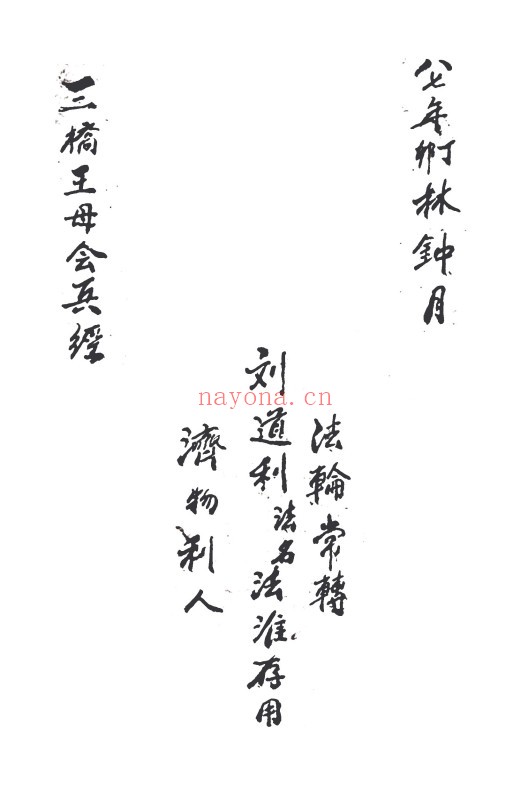 八七年阝丁林鈡月
法輪常轉
刘道利法名法淮存用
濟物利人
三橋王母会兵經
nayona.cn